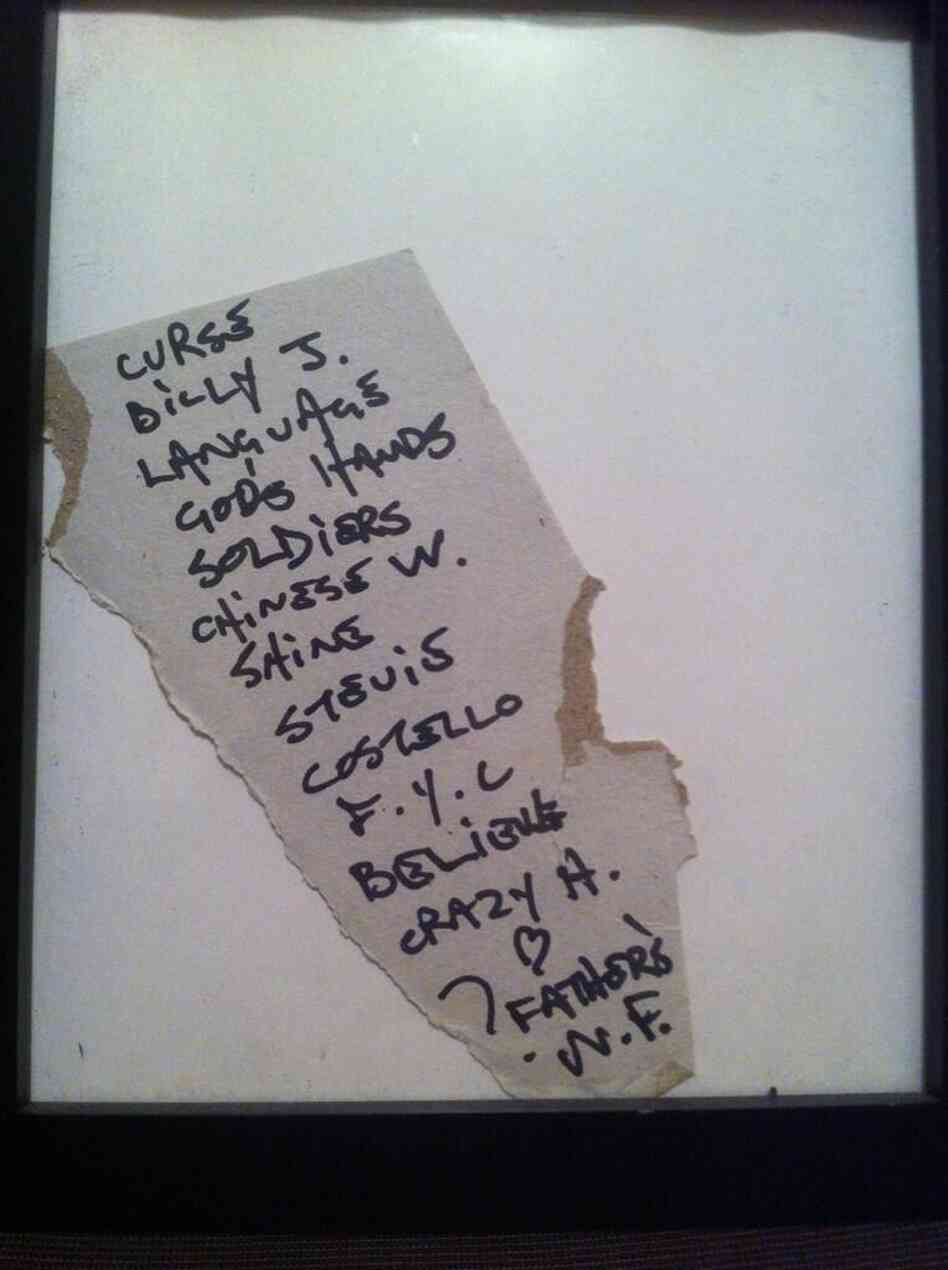 CURSE
BILLY J.
LANGUAGE
GOD'S HANDS
SOLDIERS
CHINESE W.
SHINE
STEVIE
COSTELLO
F.Y.C
BELIEVE
CRAZY H.
? FATHER'S
N.F.